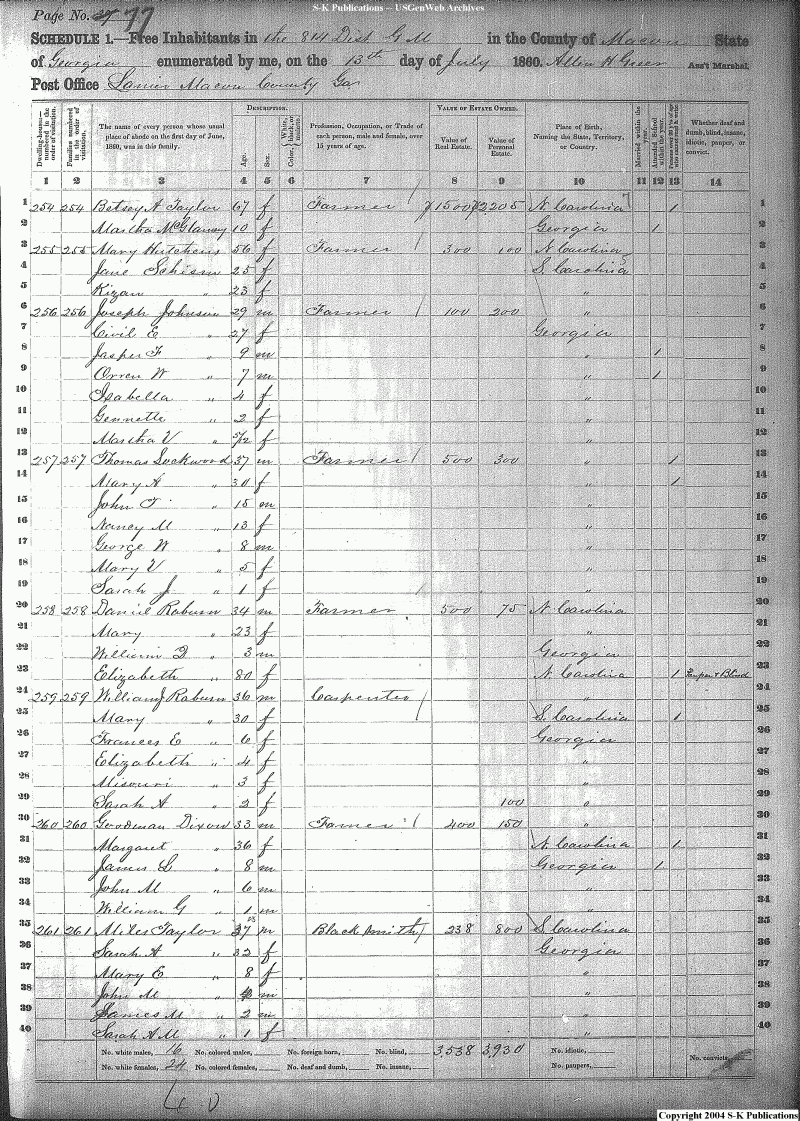 S-K Publications -- USGenWeb Archives
Page No. 77
SCHEDULE 1.—Free Inhabitants in the 814 Dist G M in the County of Macon State
of Georgia enumerated by me, on the 13th day of July 1860. Allen H Greer Ass't Marshal.
Post Office Lanier Macon County Ga
Dwelling-houses— numbered in the order of visitation. Families numbered in the order of visitation. The name of every person whose usual place of abode on the first day of June, 1860, was in this family. DESCRIPTION. Age. Sex. Color, White, black, or mulatto. Profession, Occupation, or Trade of each person, male and female, over 15 years of age. VALUE OF ESTATE OWNED. Value of Real Estate. Value of Personal Estate. Place of Birth, Naming the State, Territory, or Country. Married within the year. Attended School within the year. Whether deaf and dumb, blind, insane, idiotic, pauper, or convict.
1 2 3 4 5 6 7 8 9 10 11 12 13 14
1 254 254 Betsey A Taylor 67 f Farmer 1500 2205 N Carolina 1 1
2 Martha McGlamry 10 f Georgia 1 2
3 255 255 Mary Hutchens 56 f Farmer 300 100 N Carolina 3
4 Jane Schism 25 f S. Carolina 4
5 Kizan " 23 f " 5
6 256 256 Joseph Johnson 29 m Farmer 100 200 " 6
7 Civil E " 27 f Georgia 7
8 Jasper F " 9 m " 1 8
9 Orren W " 7 m " 1 9
10 Isabella " 4 f " 10
11 Gennette " 2 f " 11
12 Martha V " 5/12 f " 12
13 257 257 Thomas Lockwood 37 m Farmer 500 300 " 1 13
14 Mary A " 30 f " 1 14
15 John T " 15 m " 15
16 Nancy M " 13 f " 16
17 George W " 8 m " 17
18 Mary V " 5 f " 18
19 Sarah J " 1 f " 19
20 258 258 Daniel Raburn 34 m Farmer 500 75 N Carolina 20
21 Mary " 23 f " 21
22 William D " 3 m Georgia 22
23 Elizabeth " 80 f N Carolina 1 Pauper & Blind 23
24 259 259 William J Raburn 36 m Carpenter " 24
25 Mary " 30 f S. Carolina 1 25
26 Frances E " 6 f Georgia 26
27 Elizabeth " 4 f " 27
28 Misouri " 3 f " 28
29 Sarah A " 2 f 100 " 29
30 260 260 Goodman Dixon 33 m Farmer 400 150 " 30
31 Margaret " 36 f N. Carolina 1 31
32 James L " 8 m Georgia 1 32
33 John M " 6 m " 33
34 William G " 1 m " 34
35 261 261 Miles Taylor 37 m Black Smith 238 800 S Carolina 35
36 Sarah A " 32 f Georgia 36
37 Mary E " 8 f " 37
38 John M " 4 m " 38
39 James M " 2 m " 39
40 Sarah A M " 1 f " 40
No. white males, 16 No. colored males, No. foreign born, No. blind, 3,538 3,930 No. idiotic, No. convicts,
No. white females, 24 No. colored females, No. deaf and dumb, No. insane, No. paupers,
40
Copyright 2004 S-K Publications